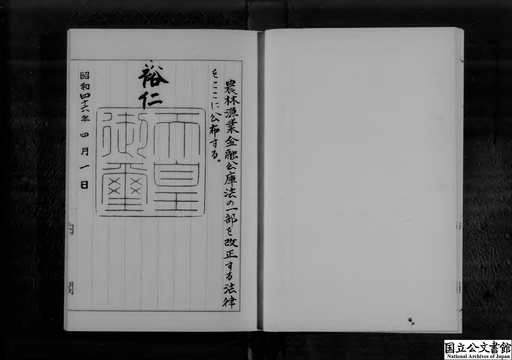 農林漁業金融公庫法の一部を改正する法律
をここに公布する。
裕仁
天皇
御璽
昭和四十六年四月一日
国立公文書館
National Archives of Japan